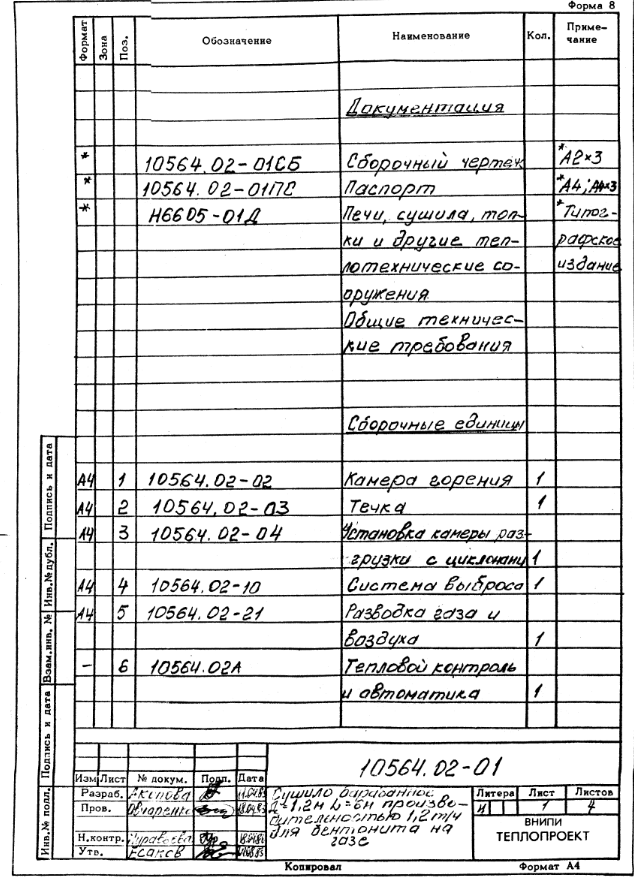 Форма 8
Формат Зона Поз. Обозначение Наименование Кол. Приме-
чание
Документация
* 10564.02-01СБ Сборочный чертеж *А2×3
* 10564.02-01ПС Паспорт *А4; А4×3
* Н6605-01Д Печи, сушила, топ- *Типог-
ки и другие теп- рафское
лотехнические со- издание
оружения
Общие техничес-
кие требования
Сборочные единицы
А4 1 10564.02-02 Камера горения 1
А4 2 10564.02-03 Течка 1
А4 3 10564.02-04 Установка камеры раз-
грузки с циклонами 1
А4 4 10564.02-10 Система выброса 1
А4 5 10564.02-21 Разводка газа и
воздуха 1
- 6 10564.02А Тепловой контроль
и автоматика 1
Подпись и дата
Инв.№ дубл.
Взам.инв. №
Подпись и дата
Инв.№ подл.
10564.02-01
Изм Лист № докум. Подп. Дата
Разраб. Аксенова
Пров. Овчаренко
Н.контр.
Утв. Есаков
Сушило барабанное
Д=1,2м L=6м произво-
дительностью 1,2т/ч
для бентонита на
газе
Литера Лист Листов
И 1 4
ВНИПИ
ТЕПЛОПРОЕКТ
Копировал Формат А4